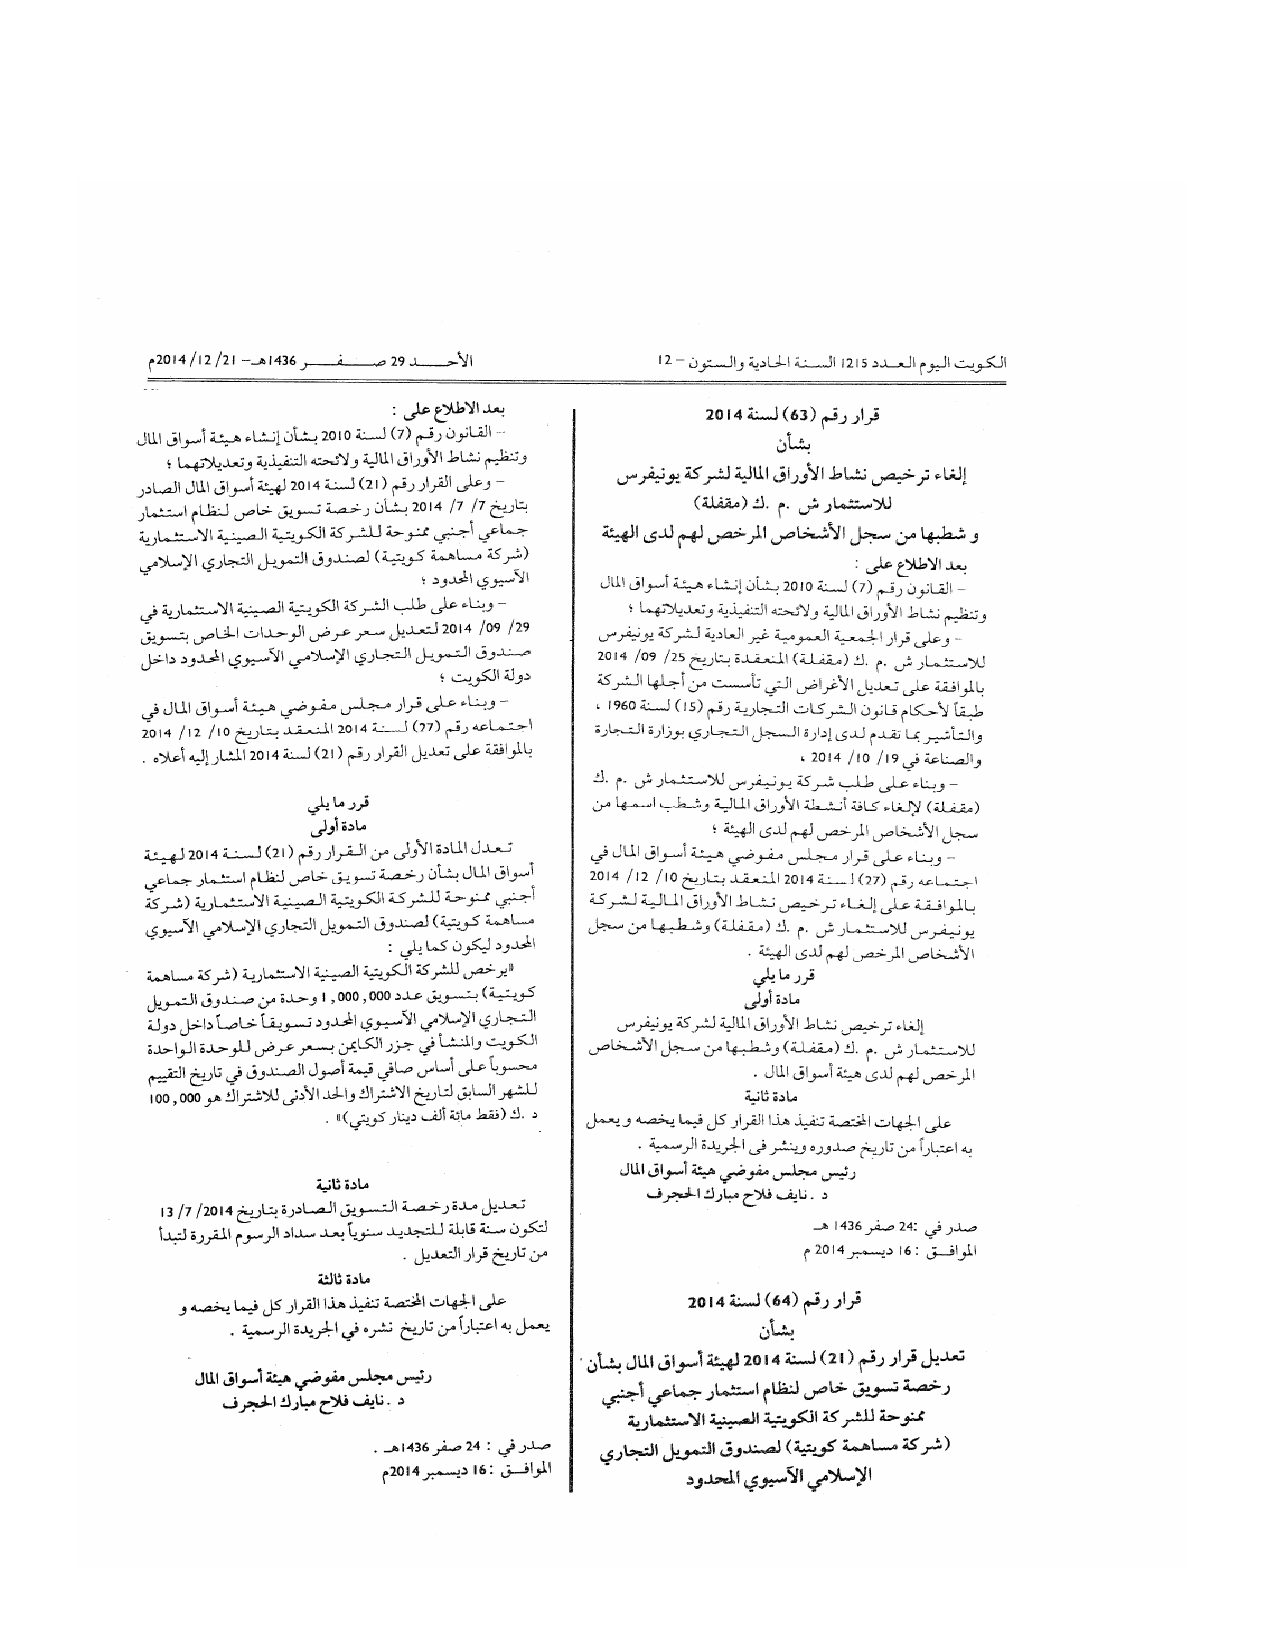 الكويت اليوم العدد 1215 السنة الحادية والستون – 12
الأحـــد 29 صـــفـــر 1436هـ – 21/ 12/ 2014م
قرار رقم (63) لسنة 2014
بشأن
إلغاء ترخيص نشاط الأوراق المالية لشركة يونيفرس
للاستثمار ش .م .ك (مقفلة)
و شطبها من سجل الأشخاص المرخص لهم لدى الهيئة
بعد الاطلاع على :
– القانون رقم (7) لسنة 2010 بشأن إنشاء هيئة أسواق المال
وتنظيم نشاط الأوراق المالية ولائحته التنفيذية وتعديلاتهما ؛
– وعلى قرار الجمعية العمومية غير العادية لشركة يونيفرس
للاستثمار ش .م .ك (مقفلة) المنعقدة بتاريخ 25/ 09/ 2014
بالموافقة على تعديل الأغراض التي تأسست من أجلها الشركة
طبقاً لأحكام قانون الشركات التجارية رقم (15) لسنة 1960 ،
والتأشير بما تقدم لدى إدارة السجل التجاري بوزارة التجارة
والصناعة في 19/ 10/ 2014 ،
– وبناء على طلب شركة يونيفرس للاستثمار ش .م .ك
(مقفلة) لإلغاء كافة أنشطة الأوراق المالية وشطب اسمها من
سجل الأشخاص المرخص لهم لدى الهيئة ؛
– وبناء على قرار مجلس مفوضي هيئة أسواق المال في
اجتماعه رقم (27) لسنة 2014 المنعقد بتاريخ 10/ 12/ 2014
بالموافقة على إلغاء ترخيص نشاط الأوراق المالية لشركة
يونيفرس للاستثمار ش .م .ك (مقفلة) وشطبها من سجل
الأشخاص المرخص لهم لدى الهيئة .
قرر ما يلي
مادة أولى
إلغاء ترخيص نشاط الأوراق المالية لشركة يونيفرس
للاستثمار ش .م .ك (مقفلة) وشطبها من سجل الأشخاص
المرخص لهم لدى هيئة أسواق المال .
مادة ثانية
على الجهات المختصة تنفيذ هذا القرار كل فيما يخصه ويعمل
به اعتباراً من تاريخ صدوره وينشر في الجريدة الرسمية .
رئيس مجلس مفوضي هيئة أسواق المال
د .نايف فلاح مبارك الحجرف
صدر في :24 صفر 1436 هـ
الموافـق : 16 ديسمبر 2014 م
قرار رقم (64) لسنة 2014
بشأن
تعديل قرار رقم (21) لسنة 2014 لهيئة أسواق المال بشأن
رخصة تسويق خاص لنظام استثمار جماعي أجنبي
ممنوحة للشركة الكويتية الصينية الاستثمارية
(شركة مساهمة كويتية) لصندوق التمويل التجاري
الإسلامي الآسيوي المحدود
بعد الاطلاع على :
– القانون رقم (7) لسنة 2010 بشأن إنشاء هيئة أسواق المال
وتنظيم نشاط الأوراق المالية ولائحته التنفيذية وتعديلاتهما ؛
– وعلى القرار رقم (21) لسنة 2014 لهيئة أسواق المال الصادر
بتاريخ 7/ 7/ 2014 بشأن رخصة تسويق خاص لنظام استثمار
جماعي أجنبي ممنوحة للشركة الكويتية الصينية الاستثمارية
(شركة مساهمة كويتية) لصندوق التمويل التجاري الإسلامي
الآسيوي المحدود ؛
– وبناء على طلب الشركة الكويتية الصينية الاستثمارية في
29/ 09/ 2014 لتعديل سعر عرض الوحدات الخاص بتسويق
صندوق التمويل التجاري الإسلامي الآسيوي المحدود داخل
دولة الكويت ؛
– وبناء على قرار مجلس مفوضي هيئة أسواق المال في
اجتماعه رقم (27) لسنة 2014 المنعقد بتاريخ 10/ 12/ 2014
بالموافقة على تعديل القرار رقم (21) لسنة 2014 المشار إليه أعلاه .
قرر ما يلي
مادة أولى
تعدل المادة الأولى من القرار رقم (21) لسنة 2014 لهيئة
أسواق المال بشأن رخصة تسويق خاص لنظام استثمار جماعي
أجنبي ممنوحة للشركة الكويتية الصينية الاستثمارية (شركة
مساهمة كويتية) لصندوق التمويل التجاري الإسلامي الآسيوي
المحدود ليكون كما يلي :
"يرخص للشركة الكويتية الصينية الاستثمارية (شركة مساهمة
كويتية) بتسويق عدد 1,000,000 وحدة من صندوق التمويل
التجاري الإسلامي الآسيوي المحدود تسويقاً خاصاً داخل دولة
الكويت والمنشأ في جزر الكايمن بسعر عرض للوحدة الواحدة
محسوباً على أساس صافي قيمة أصول الصندوق في تاريخ التقييم
للشهر السابق لتاريخ الاشتراك والحد الأدنى للاشتراك هو 100,000
د .ك (فقط مائة ألف دينار كويتي)" .
مادة ثانية
تعديل مدة رخصة التسويق الصادرة بتاريخ 13/7/2014
لتكون سنة قابلة للتجديد سنوياً بعد سداد الرسوم المقررة لتبدأ
من تاريخ قرار التعديل .
مادة ثالثة
على الجهات المختصة تنفيذ هذا القرار كل فيما يخصه و
يعمل به اعتباراً من تاريخ نشره في الجريدة الرسمية .
رئيس مجلس مفوضي هيئة أسواق المال
د .نايف فلاح مبارك الحجرف
صدر في : 24 صفر 1436هـ .
الموافـق :16 ديسمبر 2014م